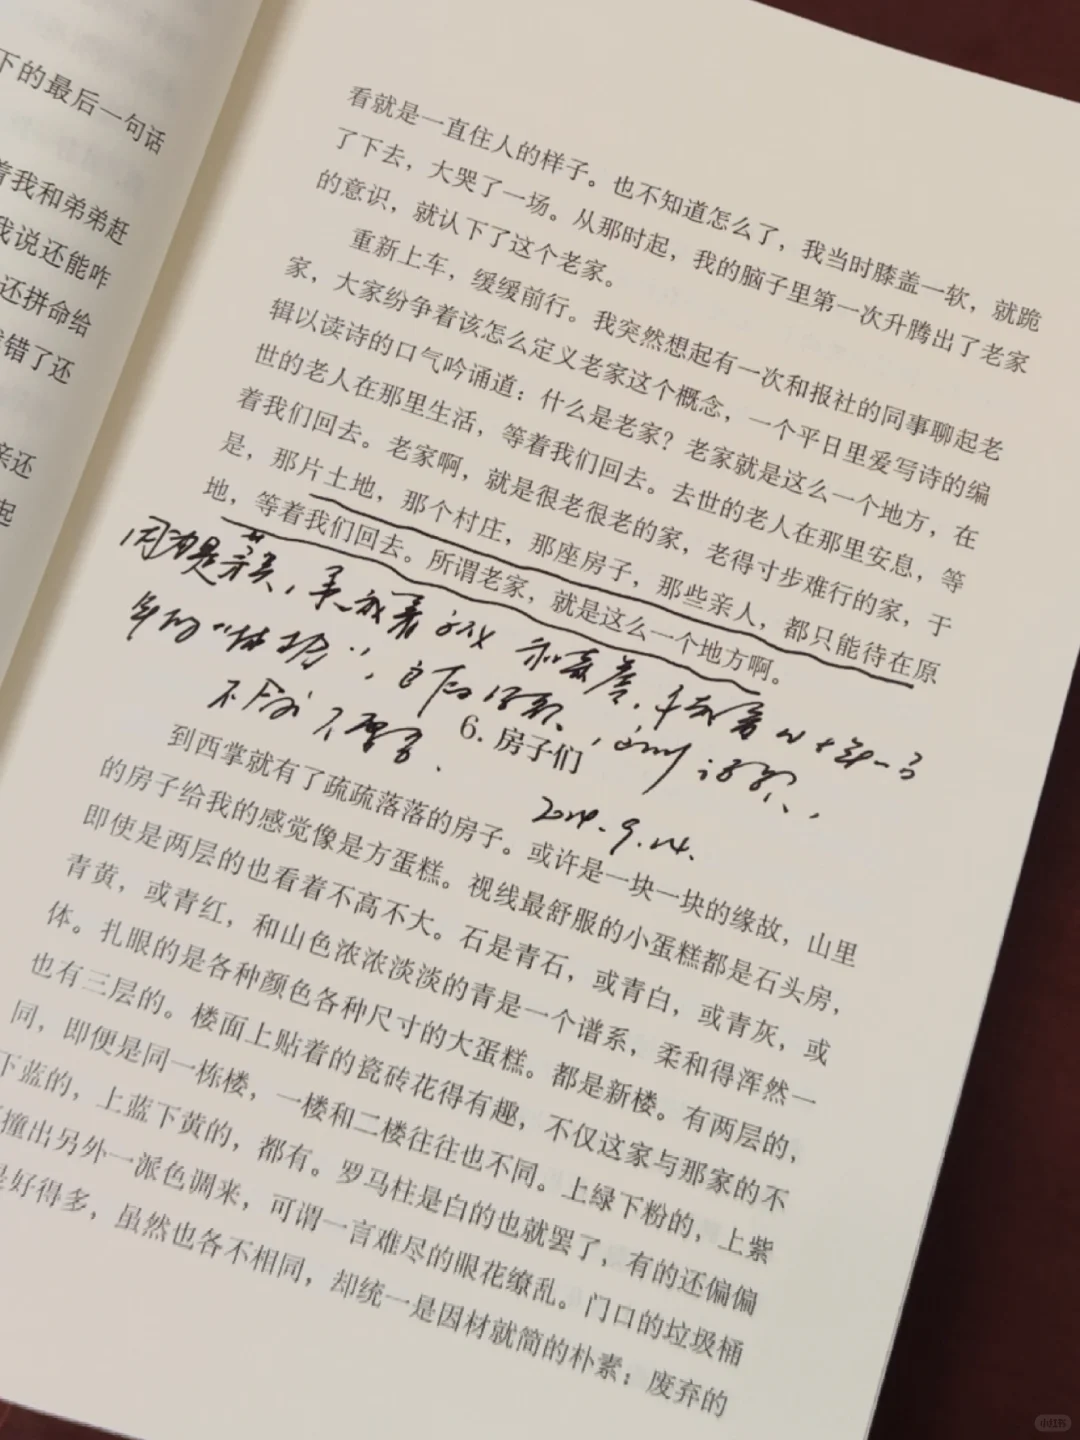 下的最后一句话
着我和弟弟赶
我说还能咋
还拼命给
错了还
亲还
起
看就是一直住人的样子。也不知道怎么了，我当时膝盖一软，就跪
了下去，大哭了一场。从那时起，我的脑子里第一次升腾出了老家
的意识，就认下了这个老家。
重新上车，缓缓前行。我突然想起有一次和报社的同事聊起老
家，大家纷争着该怎么定义老家这个概念，一个平日里爱写诗的编
辑以读诗的口气吟诵道：什么是老家？老家就是这么一个地方，在
世的老人在那里生活，等着我们回去。去世的老人在那里安息，等
着我们回去。老家啊，就是很老很老的家，老得寸步难行的家，于
是，那片土地，那个村庄，那座房子，那些亲人，都只能待在原
地，等着我们回去。所谓老家，就是这么一个地方啊。
因为是
不
6. 房子们
2024.9.14.
到西掌就有了疏疏落落的房子。或许是一块一块的缘故，山里
的房子给我的感觉像是方蛋糕。视线最舒服的小蛋糕都是石头房，
即使是两层的也看着不高不大。石是青石，或青白，或青灰，或
青黄，或青红，和山色浓浓淡淡的青是一个谱系，柔和得浑然一
体。扎眼的是各种颜色各种尺寸的大蛋糕。都是新楼。有两层的，
也有三层的。楼面上贴着的瓷砖花得有趣，不仅这家与那家的不
同，即便是同一栋楼，一楼和二楼往往也不同。上绿下粉的，上紫
下蓝的，上蓝下黄的，都有。罗马柱是白的也就罢了，有的还偏偏
撞出另外一派色调来，可谓一言难尽的眼花缭乱。门口的垃圾桶
是好得多，虽然也各不相同，却统一是因材就简的朴素：废弃的